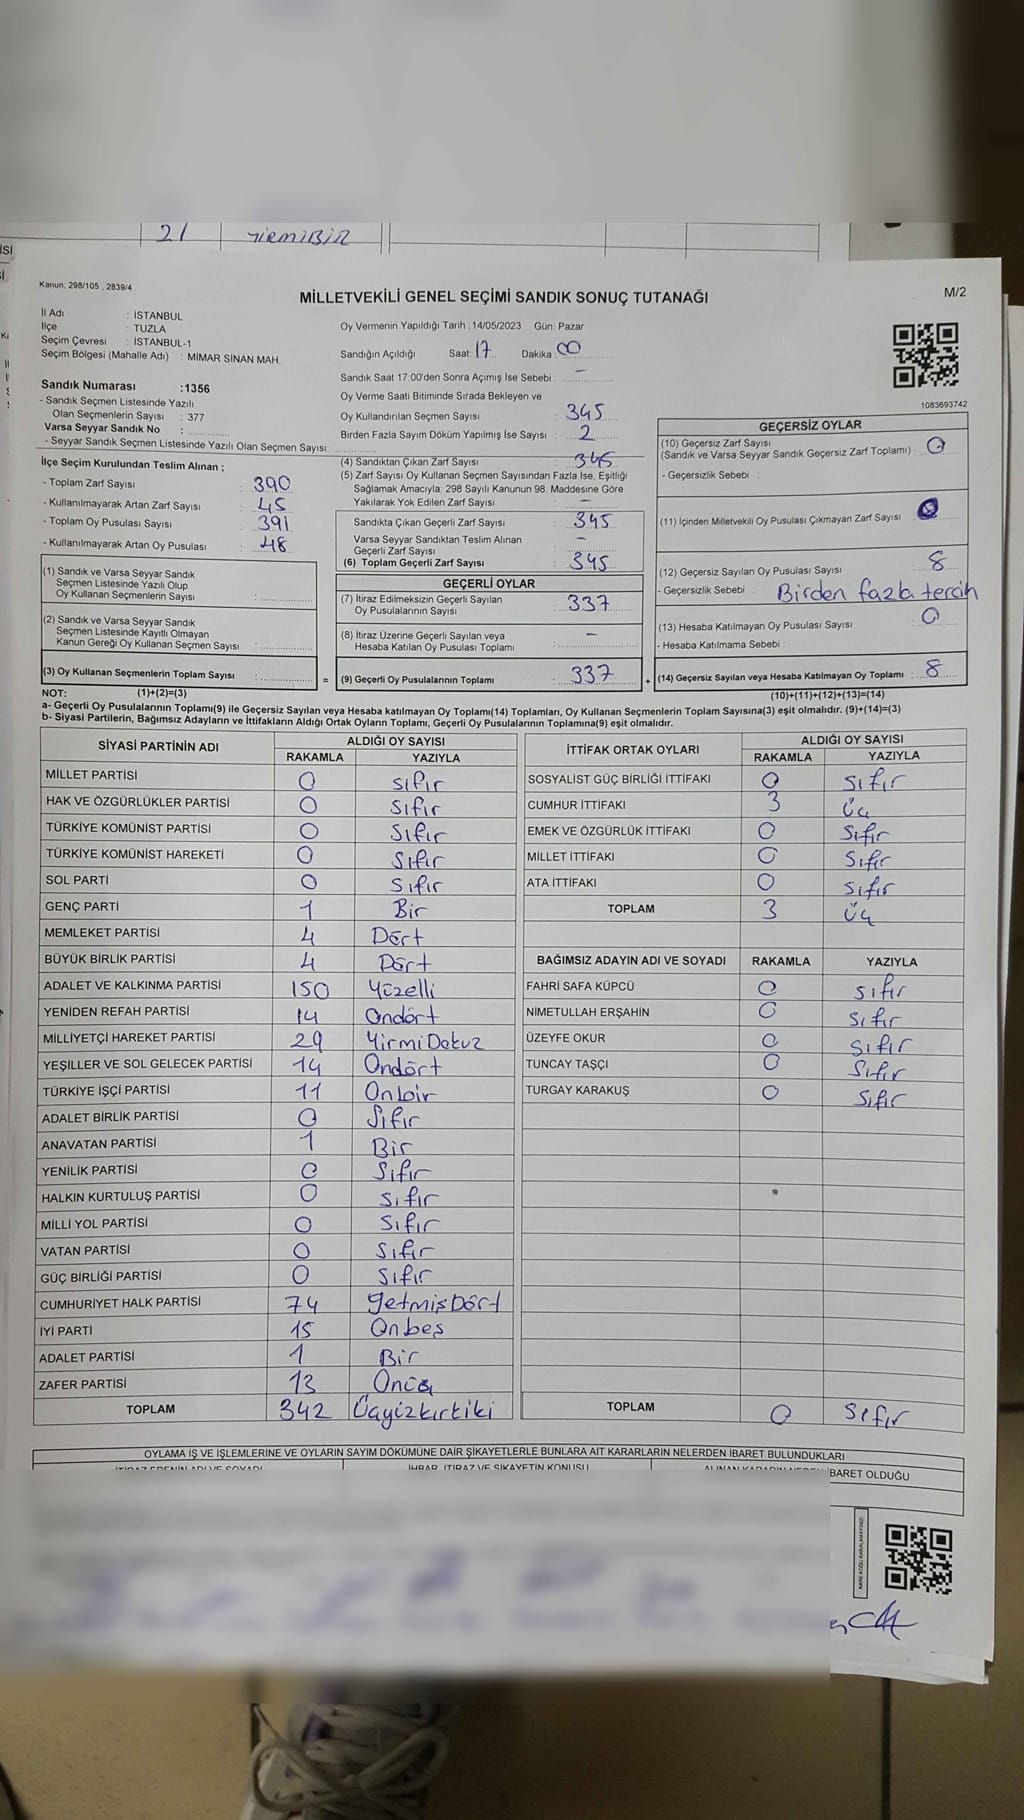 21 YİRMİBİR
Kanun, 298/105 , 2839/4
M/2
MİLLETVEKİLİ GENEL SEÇİMİ SANDIK SONUÇ TUTANAĞI
İl Adı : İSTANBUL
İlçe : TUZLA
Seçim Çevresi : İSTANBUL-1
Seçim Bölgesi (Mahalle Adı) : MİMAR SİNAN MAH.
Sandık Numarası :1356
- Sandık Seçmen Listesinde Yazılı
Olan Seçmenlerin Sayısı : 377
Varsa Seyyar Sandık No :
- Seyyar Sandık Seçmen Listesinde Yazılı Olan Seçmen Sayısı:
İlçe Seçim Kurulundan Teslim Alınan ;
- Toplam Zarf Sayısı : 390
- Kullanılmayarak Artan Zarf Sayısı : 45
- Toplam Oy Pusulası Sayısı : 391
- Kullanılmayarak Artan Oy Pusulası : 48
(1) Sandık ve Varsa Seyyar Sandık
Seçmen Listesinde Yazılı Olup
Oy Kullanan Seçmenlerin Sayısı :
(2) Sandık ve Varsa Seyyar Sandık
Seçmen Listesinde Kayıtlı Olmayan
Kanun Gereği Oy Kullanan Seçmen Sayısı :
(3) Oy Kullanan Seçmenlerin Toplam Sayısı :
Oy Vermenin Yapıldığı Tarih : 14/05/2023 Gün: Pazar
Sandığın Açıldığı Saat: 17 Dakika : 00
Sandık Saat 17:00'den Sonra Açımış İse Sebebi : -
Oy Verme Saati Bitiminde Sırada Bekleyen ve
Oy Kullandırılan Seçmen Sayısı : 345
Birden Fazla Sayım Döküm Yapılmış İse Sayısı : 2
(4) Sandıktan Çıkan Zarf Sayısı : 345
(5) Zarf Sayısı Oy Kullanan Seçmen Sayısından Fazla İse, Eşitliği
Sağlamak Amacıyla; 298 Sayılı Kanunun 98. Maddesine Göre
Yakılarak Yok Edilen Zarf Sayısı : -
Sandıkta Çıkan Geçerli Zarf Sayısı : 345
Varsa Seyyar Sandıktan Teslim Alınan
Geçerli Zarf Sayısı : -
(6) Toplam Geçerli Zarf Sayısı : 345
GEÇERLİ OYLAR
(7) İtiraz Edilmeksizin Geçerli Sayılan
Oy Pusulalarının Sayısı : 337
(8) İtiraz Üzerine Geçerli Sayılan veya
Hesaba Katılan Oy Pusulası Toplamı : -
= (9) Geçerli Oy Pusulalarının Toplamı : 337
1083693742
GEÇERSİZ OYLAR
(10) Geçersiz Zarf Sayısı
(Sandık ve Varsa Seyyar Sandık Geçersiz Zarf Toplamı) : 0
- Geçersizlik Sebebi :
(11) İçinden Milletvekili Oy Pusulası Çıkmayan Zarf Sayısı :
(12) Geçersiz Sayılan Oy Pusulası Sayısı : 8
- Geçersizlik Sebebi : Birden fazla tercih
(13) Hesaba Katılmayan Oy Pusulası Sayısı : 0
- Hesaba Katılmama Sebebi :
+ (14) Geçersiz Sayılan veya Hesaba Katılmayan Oy Toplamı : 8
NOT: (1)+(2)=(3)
(10)+(11)+(12)+(13)=(14)
a- Geçerli Oy Pusulasının Toplamı(9) ile Geçersiz Sayılan veya Hesaba katılmayan Oy Toplamı(14) Toplamları, Oy Kullanan Seçmenlerin Toplam Sayısına(3) eşit olmalıdır. (9)+(14)=(3)
b- Siyasi Partilerin, Bağımsız Adayların ve İttifakların Aldığı Ortak Oyların Toplamı, Geçerli Oy Pusulalarının Toplamına(9) eşit olmalıdır.
SİYASİ PARTİNİN ADI ALDIĞI OY SAYISI
RAKAMLA YAZIYLA
MİLLET PARTİSİ 0 sıfır
HAK VE ÖZGÜRLÜKLER PARTİSİ 0 sıfır
TÜRKİYE KOMÜNİST PARTİSİ 0 sıfır
TÜRKİYE KOMÜNİST HAREKETİ 0 sıfır
SOL PARTİ 0 sıfır
GENÇ PARTİ 1 Bir
MEMLEKET PARTİSİ 4 Dört
BÜYÜK BİRLİK PARTİSİ 4 Dört
ADALET VE KALKINMA PARTİSİ 150 Yüzelli
YENİDEN REFAH PARTİSİ 14 Ondört
MİLLİYETÇİ HAREKET PARTİSİ 29 YirmiDokuz
YEŞİLLER VE SOL GELECEK PARTİSİ 14 Ondört
TÜRKİYE İŞÇİ PARTİSİ 11 Onbir
ADALET BİRLİK PARTİSİ 0 Sıfır
ANAVATAN PARTİSİ 1 Bir
YENİLİK PARTİSİ 0 Sıfır
HALKIN KURTULUŞ PARTİSİ 0 Sıfır
MİLLİ YOL PARTİSİ 0 Sıfır
VATAN PARTİSİ 0 Sıfır
GÜÇ BİRLİĞİ PARTİSİ 0 Sıfır
CUMHURİYET HALK PARTİSİ 74 YetmişDört
İYİ PARTİ 15 Onbeş
ADALET PARTİSİ 1 Bir
ZAFER PARTİSİ 13 Onüç
TOPLAM 342 Üçyüzkırkiki
İTTİFAK ORTAK OYLARI ALDIĞI OY SAYISI
RAKAMLA YAZIYLA
SOSYALİST GÜÇ BİRLİĞİ İTTİFAKI 0 sıfır
CUMHUR İTTİFAKI 3 üç
EMEK VE ÖZGÜRLÜK İTTİFAKI 0 sıfır
MİLLET İTTİFAKI 0 sıfır
ATA İTTİFAKI 0 sıfır
TOPLAM 3 üç
BAĞIMSIZ ADAYIN ADI VE SOYADI RAKAMLA YAZIYLA
FAHRİ SAFA KÜPCÜ 0 sıfır
NİMETULLAH ERŞAHİN 0 sıfır
ÜZEYFE OKUR 0 sıfır
TUNCAY TAŞÇI 0 Sıfır
TURGAY KARAKUŞ 0 Sıfır
TOPLAM 0 Sıfır
OYLAMA İŞ VE İŞLEMLERİNE VE OYLARIN SAYIM DÖKÜMÜNE DAİR ŞİKAYETLERLE BUNLARA AİT KARARLARIN NELERDEN İBARET BULUNDUKLARI
İTİRAZ EDENİN ADI VE SOYADI İHBAR, İTİRAZ VE ŞİKAYETİN KONUSU ALINAN KARARIN NEDEN İBARET OLDUĞU